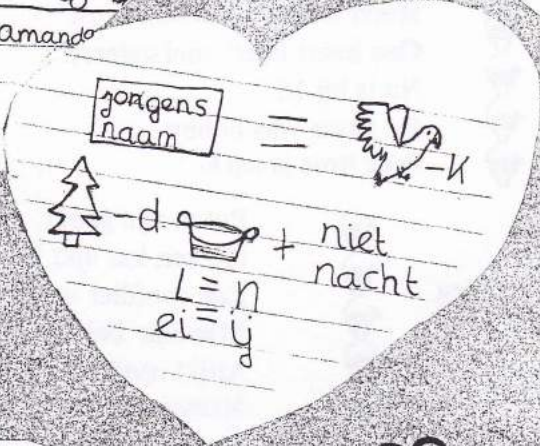 amanda
jongens
naam
=
-K
-d
+ niet
nacht
L = n
ei = ij